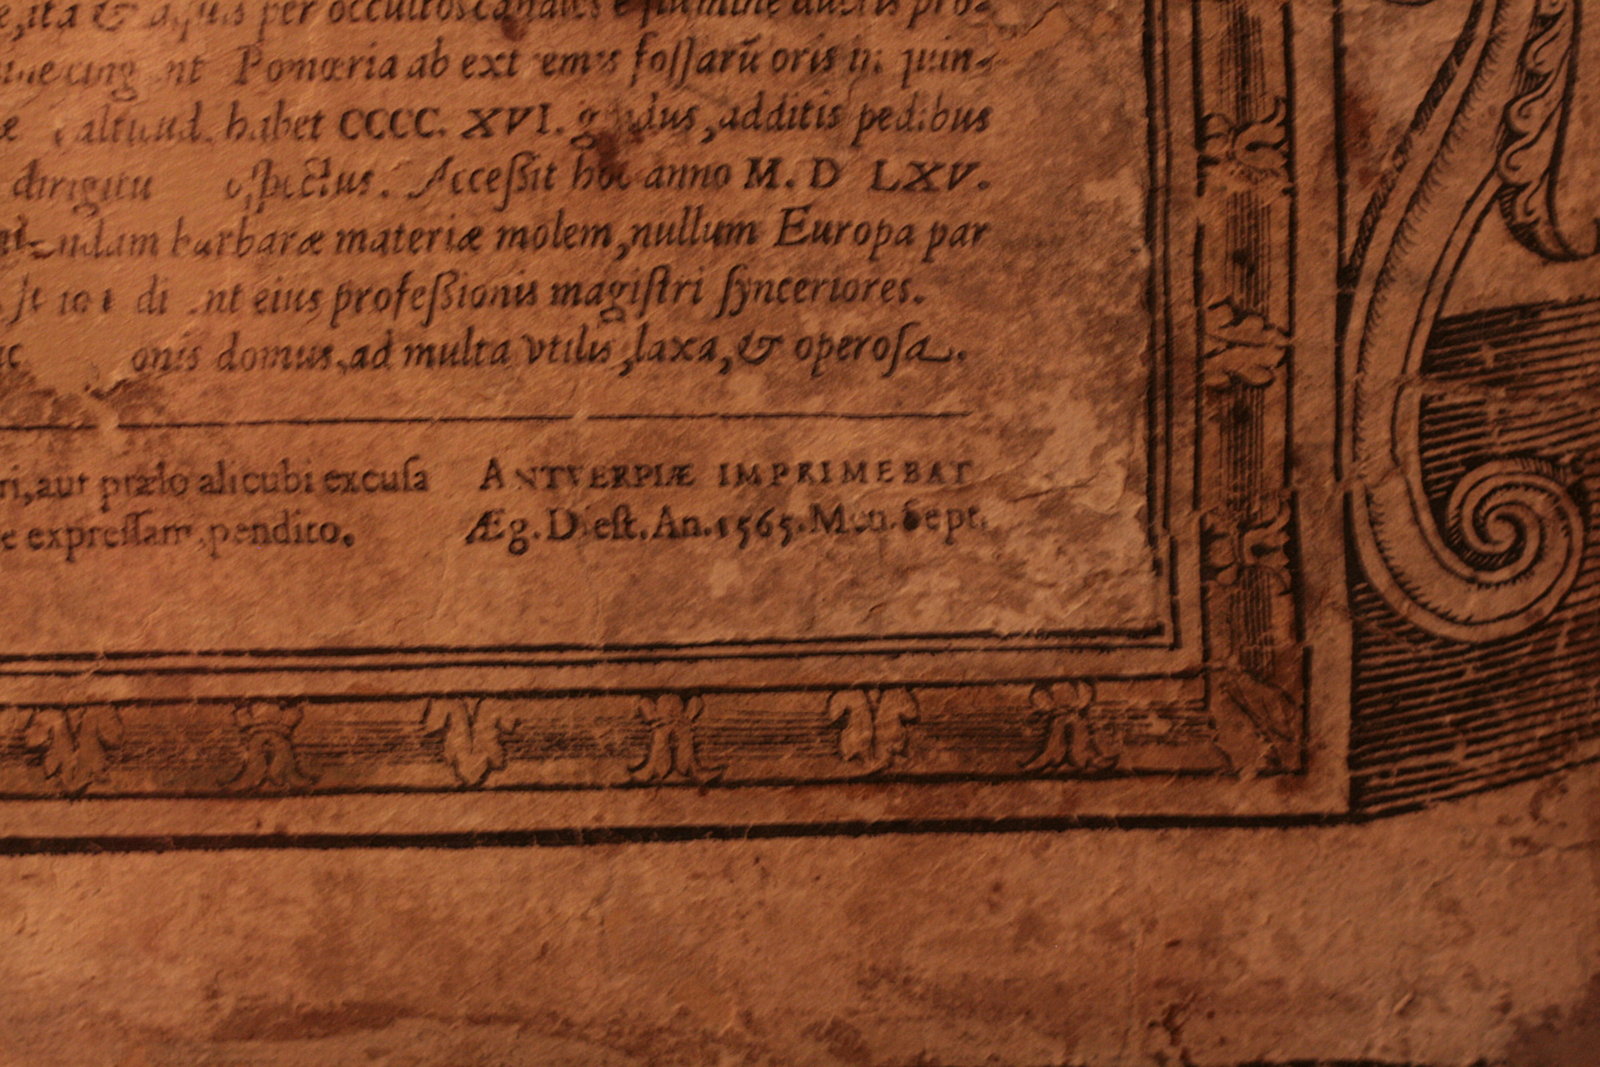 ita & aquis per occultos canales e flumine ductis pro-
Pomœria ab extremis fossarũ oris in quin-
habet CCCC. XVI. gradus, additis pedibus
dirigitu Accessit hoc anno M. D LXV.
barbaræ materiæ molem, nullum Europa par
eius professionis magistri synceriores.
onis domus, ad multa vtilis, laxa, & operosa.
ri, aut prælo alicubi excusa
e expressam, pendito.
ANTVERPIÆ IMPRIMEBAT
Æg. Diest. An. 1565. Men. Sept.